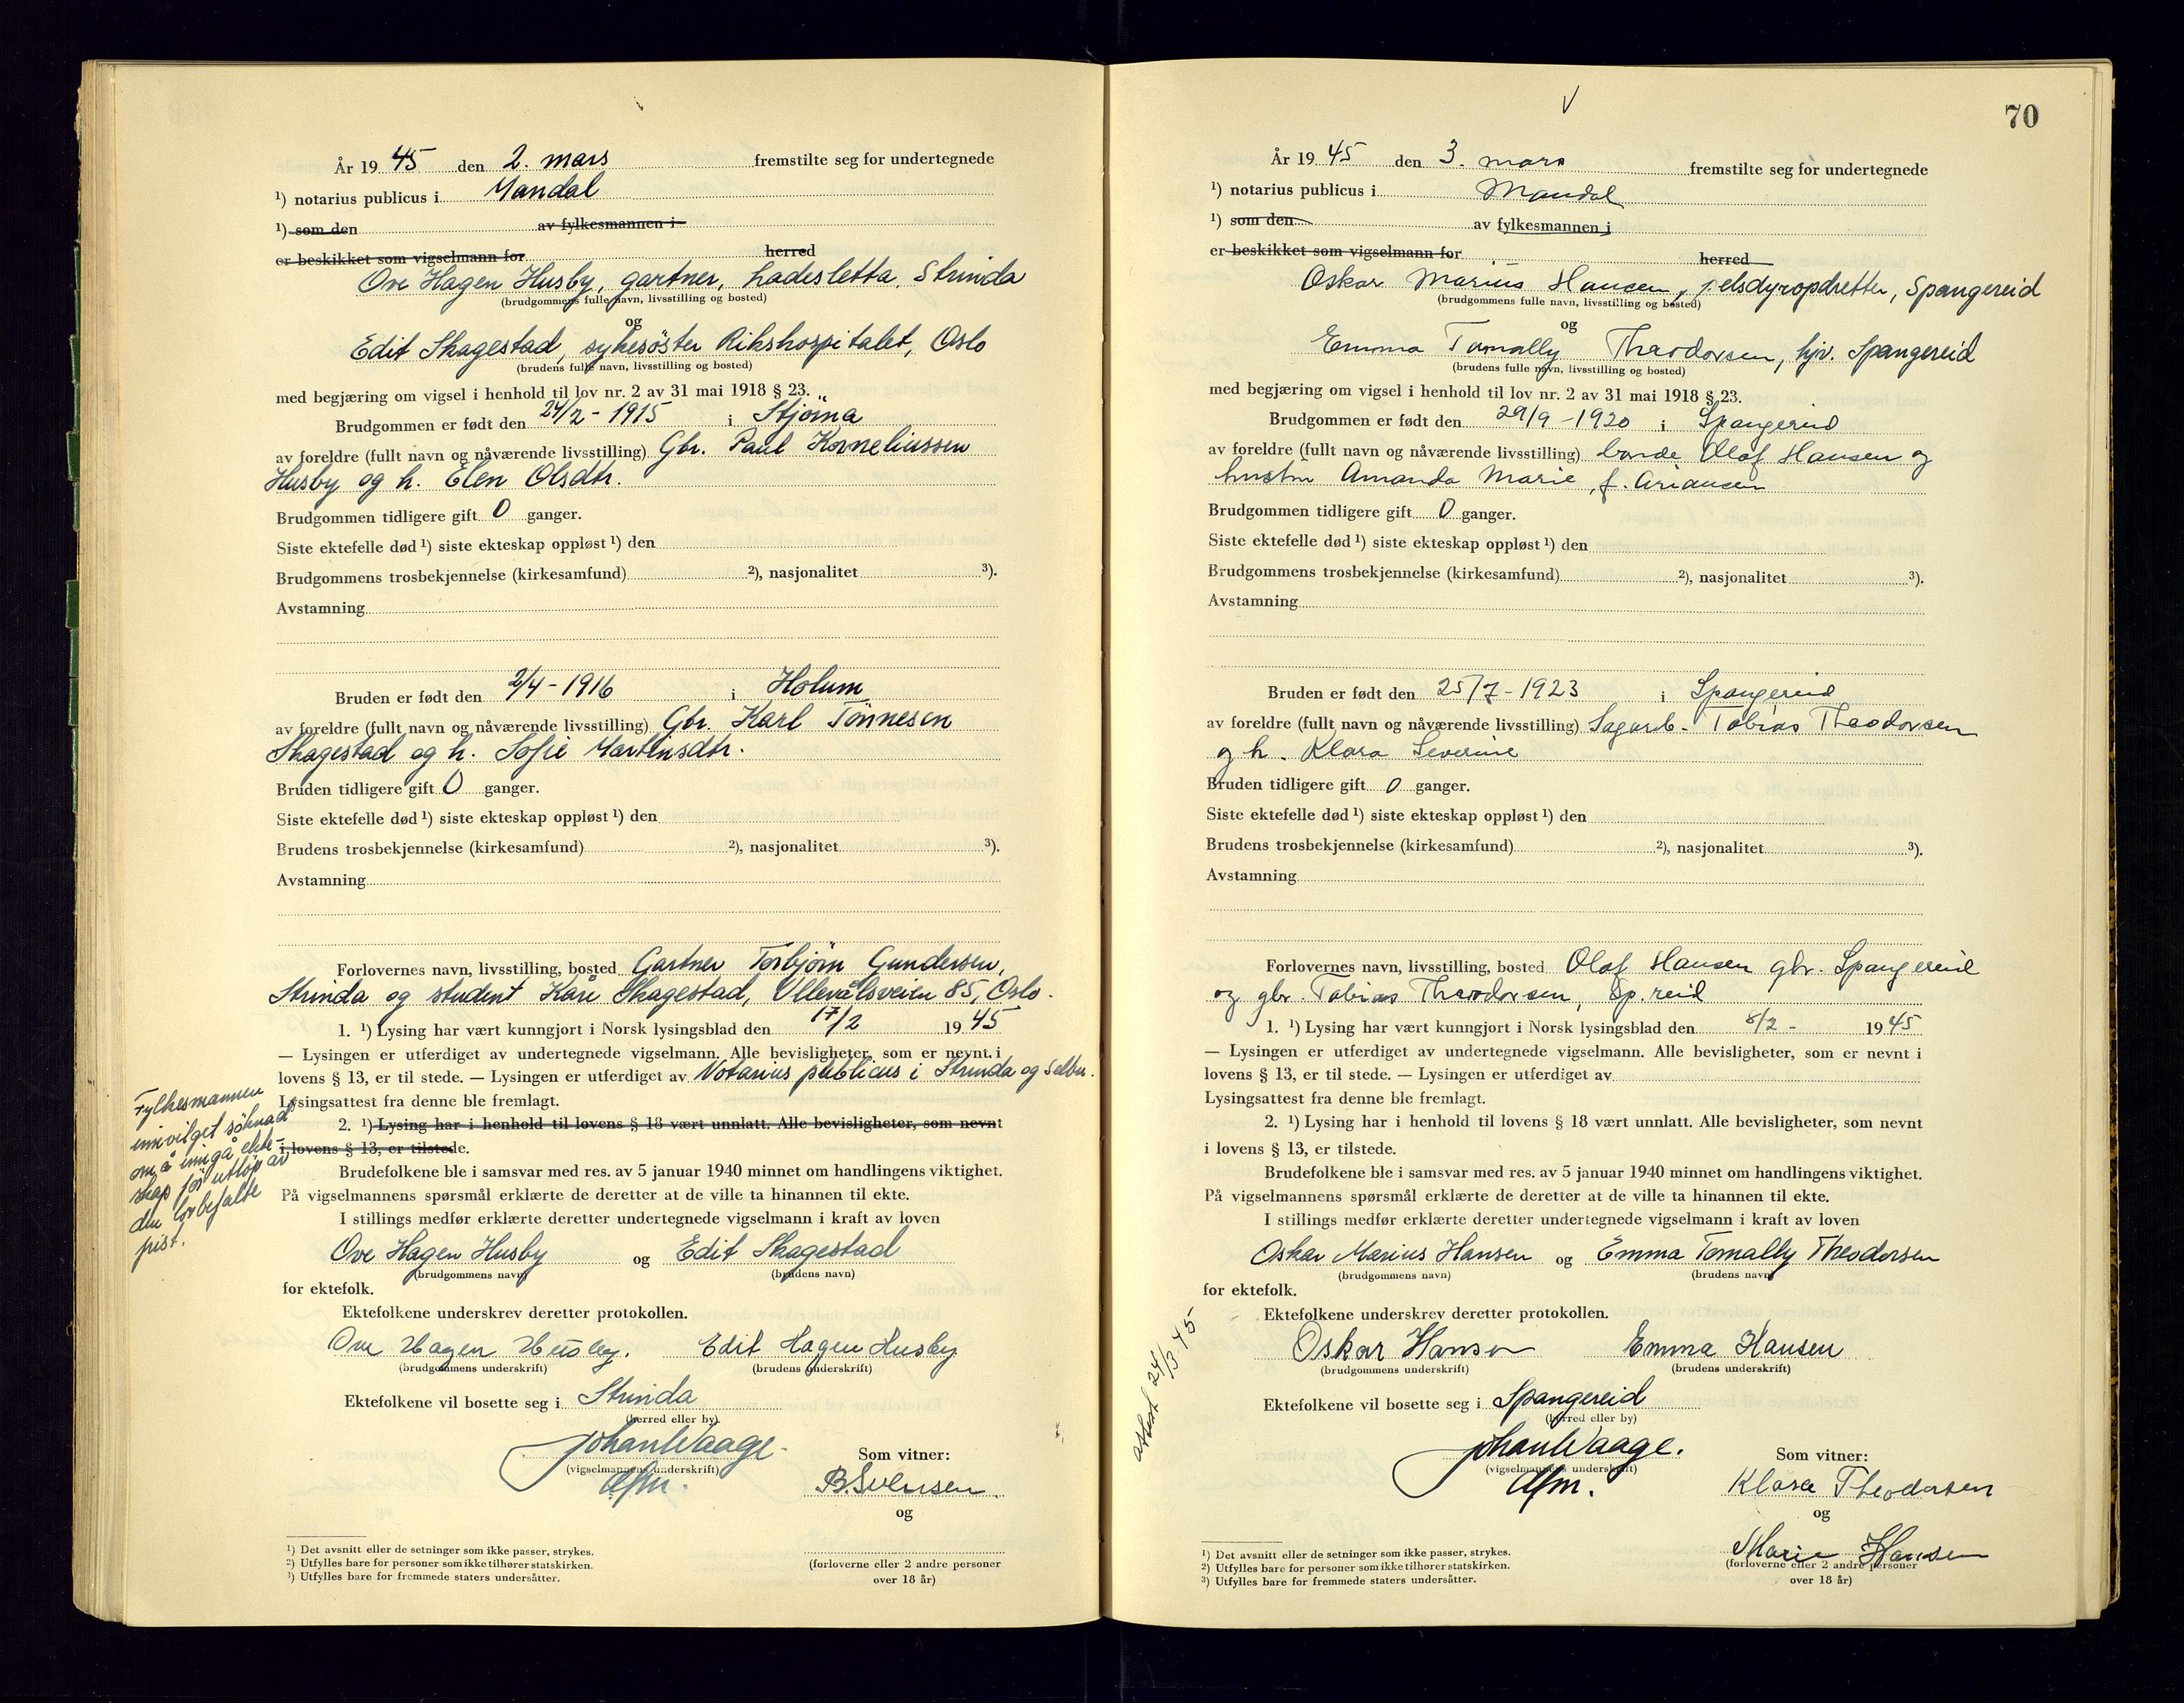 År 19 45 den 2. mars fremstilte seg for undertegnede
¹) notarius publicus i Mandal
¹) som den av fylkesmannen i
er beskikket som vigselmann for herred
Ove Hagen Husby, gartner, Ladesletta, Strinda
(brudgommens fulle navn, livsstilling og bosted)
og
Edit Skagestad, sykesöster Rikshospitalet, Oslo
(brudens fulle navn, livsstilling og bosted)
med begjæring om vigsel i henhold til lov nr. 2 av 31 mai 1918 § 23.
Brudgommen er født den 24/2 - 1915 i Stjörna
av foreldre (fullt navn og nåværende livsstilling) Gbr. Paul Korneliussen
Husby og h. Elen Olsdtr.
Brudgommen tidligere gift 0 ganger.
Siste ektefelle død ¹) siste ekteskap oppløst ¹) den
Brudgommens trosbekjennelse (kirkesamfund) ²), nasjonalitet ³).
Avstamning
Bruden er født den 2/4 - 1916 i Holum
av foreldre (fullt navn og nåværende livsstilling) Gbr. Karl Tönnesen
Skagestad og h. Sofie Martinsdtr.
Bruden tidligere gift 0 ganger.
Siste ektefelle død ¹) siste ekteskap oppløst ¹) den
Brudens trosbekjennelse (kirkesamfund) ²), nasjonalitet ³).
Avstamning
Forlovernes navn, livsstilling, bosted Gartner Torbjörn Gundersen,
Strinda og student Kåre Skagestad, Ullevålsveien 85, Oslo.
1. ¹) Lysing har vært kunngjort i Norsk lysingsblad den 17/2 19 45
— Lysingen er utferdiget av undertegnede vigselmann. Alle bevisligheter, som er nevnt i
lovens § 13, er til stede. — Lysingen er utferdiget av Notarius publicus i Strinda og Selbu.
Lysingsattest fra denne ble fremlagt.
2. ¹) Lysing har i henhold til lovens § 18 vært unnlatt. Alle bevisligheter, som nevnt
i lovens § 13, er tilstede.
Fylkesmannen
innvilget söknad
om å inngå ekte-
skap för utlöp av
den lovbefalte
frist.
Brudefolkene ble i samsvar med res. av 5 januar 1940 minnet om handlingens viktighet.
På vigselmannens spørsmål erklærte de deretter at de ville ta hinannen til ekte.
I stillings medfør erklærte deretter undertegnede vigselmann i kraft av loven
Ove Hagen Husby og Edit Skagestad
(brudgommens navn) (brudens navn)
for ektefolk.
Ektefolkene underskrev deretter protokollen.
Ove Hagen Husby. Edit Hagen Husby
(brudgommens underskrift) (brudens underskrift)
Ektefolkene vil bosette seg i Strinda
(herred eller by)
Johan Waage.
(vigselmannens underskrift)
Som vitner:
B. Svensen
og
(forloverne eller 2 andre personer
over 18 år)
¹) Det avsnitt eller de setninger som ikke passer, strykes.
²) Utfylles bare for personer som ikke tilhører statskirken.
³) Utfylles bare for fremmede staters undersåtter.
70
År 19 45 den 3. mars fremstilte seg for undertegnede
¹) notarius publicus i Mandal
¹) som den av fylkesmannen i
er beskikket som vigselmann for herred
Oskar Marius Hansen, pelsdyropdretter, Spangereid
(brudgommens fulle navn, livsstilling og bosted)
og
Emma Tomally Theodorsen, hjv. Spangereid
(brudens fulle navn, livsstilling og bosted)
med begjæring om vigsel i henhold til lov nr. 2 av 31 mai 1918 § 23.
Brudgommen er født den 29/9 - 1920 i Spangereid
av foreldre (fullt navn og nåværende livsstilling) bonde Olaf Hansen og
hustru Amanda Marie, f. Ariansen
Brudgommen tidligere gift 0 ganger.
Siste ektefelle død ¹) siste ekteskap oppløst ¹) den
Brudgommens trosbekjennelse (kirkesamfund) ²), nasjonalitet ³).
Avstamning
Bruden er født den 25/7 - 1923 i Spangereid
av foreldre (fullt navn og nåværende livsstilling) Sagarb. Tobias Theodorsen
og h. Klara Severine
Bruden tidligere gift 0 ganger.
Siste ektefelle død ¹) siste ekteskap oppløst ¹) den
Brudens trosbekjennelse (kirkesamfund) ²), nasjonalitet ³).
Avstamning
Forlovernes navn, livsstilling, bosted Olaf Hansen gbr. Spangereid
og gbr. Tobias Theodorsen, Sp.reid
1. ¹) Lysing har vært kunngjort i Norsk lysingsblad den 8/2 - 19 45
— Lysingen er utferdiget av undertegnede vigselmann. Alle bevisligheter, som er nevnt i
lovens § 13, er til stede. — Lysingen er utferdiget av
Lysingsattest fra denne ble fremlagt.
2. ¹) Lysing har i henhold til lovens § 18 vært unnlatt. Alle bevisligheter, som nevnt
i lovens § 13, er tilstede.
Brudefolkene ble i samsvar med res. av 5 januar 1940 minnet om handlingens viktighet.
På vigselmannens spørsmål erklærte de deretter at de ville ta hinannen til ekte.
I stillings medfør erklærte deretter undertegnede vigselmann i kraft av loven
Oskar Marius Hansen og Emma Tomally Theodorsen
(brudgommens navn) (brudens navn)
for ektefolk.
Ektefolkene underskrev deretter protokollen.
Oskar Hansen Emma Hansen
(brudgommens underskrift) (brudens underskrift)
attest 24/3 45
Ektefolkene vil bosette seg i Spangereid
(herred eller by)
Johan Waage.
(vigselmannens underskrift)
Som vitner:
Klara Theodorsen
og
Marie Hansen
(forloverne eller 2 andre personer
over 18 år)
¹) Det avsnitt eller de setninger som ikke passer, strykes.
²) Utfylles bare for personer som ikke tilhører statskirken.
³) Utfylles bare for fremmede staters undersåtter.